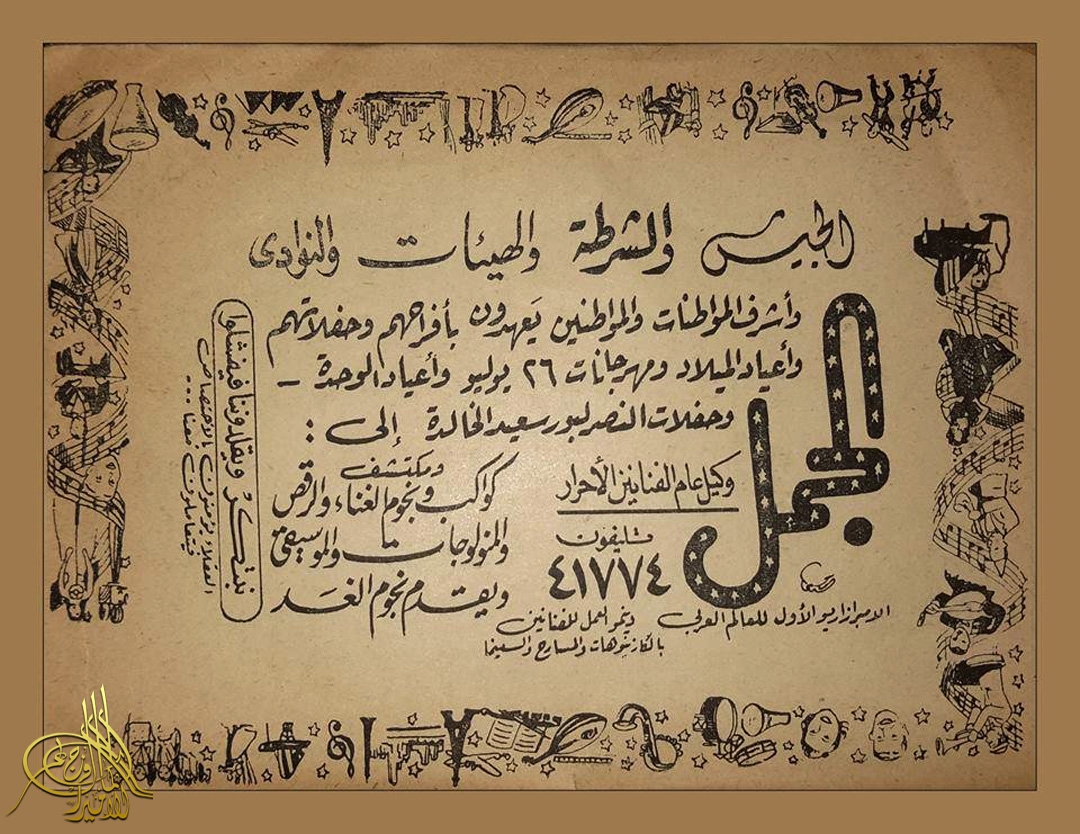 الجيش والشرطة والهيئات والنوادى
وأشرف المواطنات والمواطنين يَعهدون بأفراحهم وحفلاتهم
وأعياد الميلاد ومهرجانات ٢٦ يوليو وأعياد الوحدة -
وحفلات النصر لبورسعيد الخالدة إلى :
الجمل
وكيل عام الفنانين الأحرار
تليفون
٤١٧٧٤
ومكتشف
كواكب ونجوم الغناء والرقص
والمنولوجات والموسيقى
ويقدم نجوم الغَد
الامبرازاريو الأول للعالم العربى
العمل للفنانين
بالكازينوهات والمسارح والسينما
نبتكرُ ويقلدوننا فيفشلوا
العقلاء يؤمنون بالاختصاص
فيتعاملون معنا ...